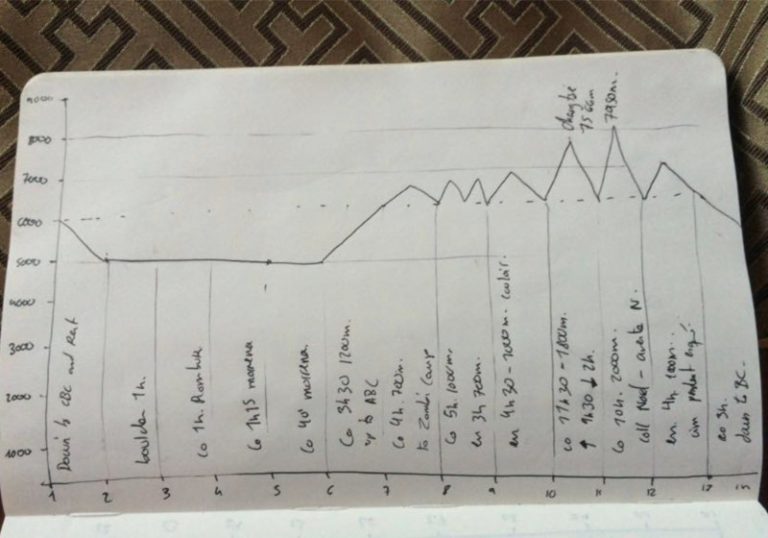 9000
8000
7000
6000
5000
4000
3000
2000
1000
Changtse
7566m
7980m.
Down to CBC and Rest
boulder 1h.
Co 1h. Rombuk
Co 1h15 morrena
Co 40' morrena.
Co 3h30 1200m.
up to ABC
Co 4h. 700m.
to Zombi Camp
Co 5h. 1000m.
en 3h 700m.
en 4h30 - 2000m.
co 11h30 - 1800m.
↑ 9h30 ↓ 2h.
Co 10h. 2000m.
coll Nord - aresta N.
en. 4h 100m.
cim
eo 3h.
down to BC.
1 2 3 4 5 6 7 8 9 10 11 12 15